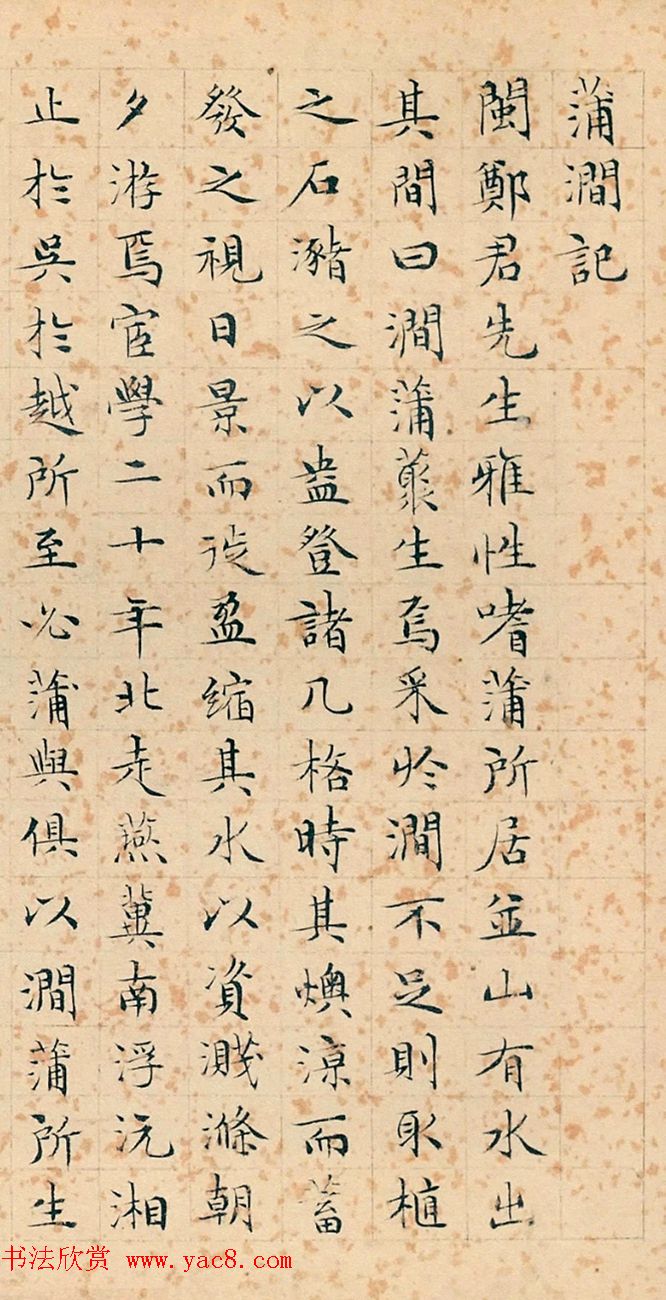 蒲澗記
閩鄭君先生雅性嗜蒲所居並山有水出
其間曰澗蒲叢生焉采於澗不足則取植
之石瀦之以盎登諸几格時其燠涼而蓄
發之視日景而徙盈縮其水以資濺滌朝
夕游焉宦學二十年北走燕冀南浮沅湘
止於吳於越所至必蒲與俱以澗蒲所生
书法欣赏 www.yac8.com